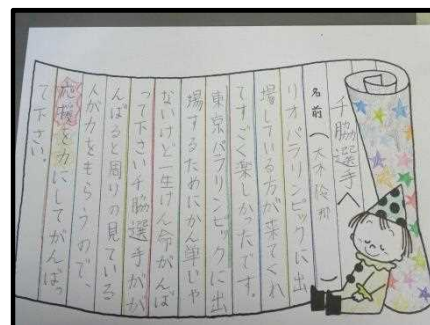 千脇選手へ
名前（大木
リオパラリンピックに出
場している方が来てくれ
てすごく楽しかったです。
東京パラリンピックに出
場するためにかん単じゃ
ないけど一生けん命がんば
って下さい千脇選手がが
んばると周りの見ている
人が力をもらうので、
応援を力にしてがんばっ
て下さい。